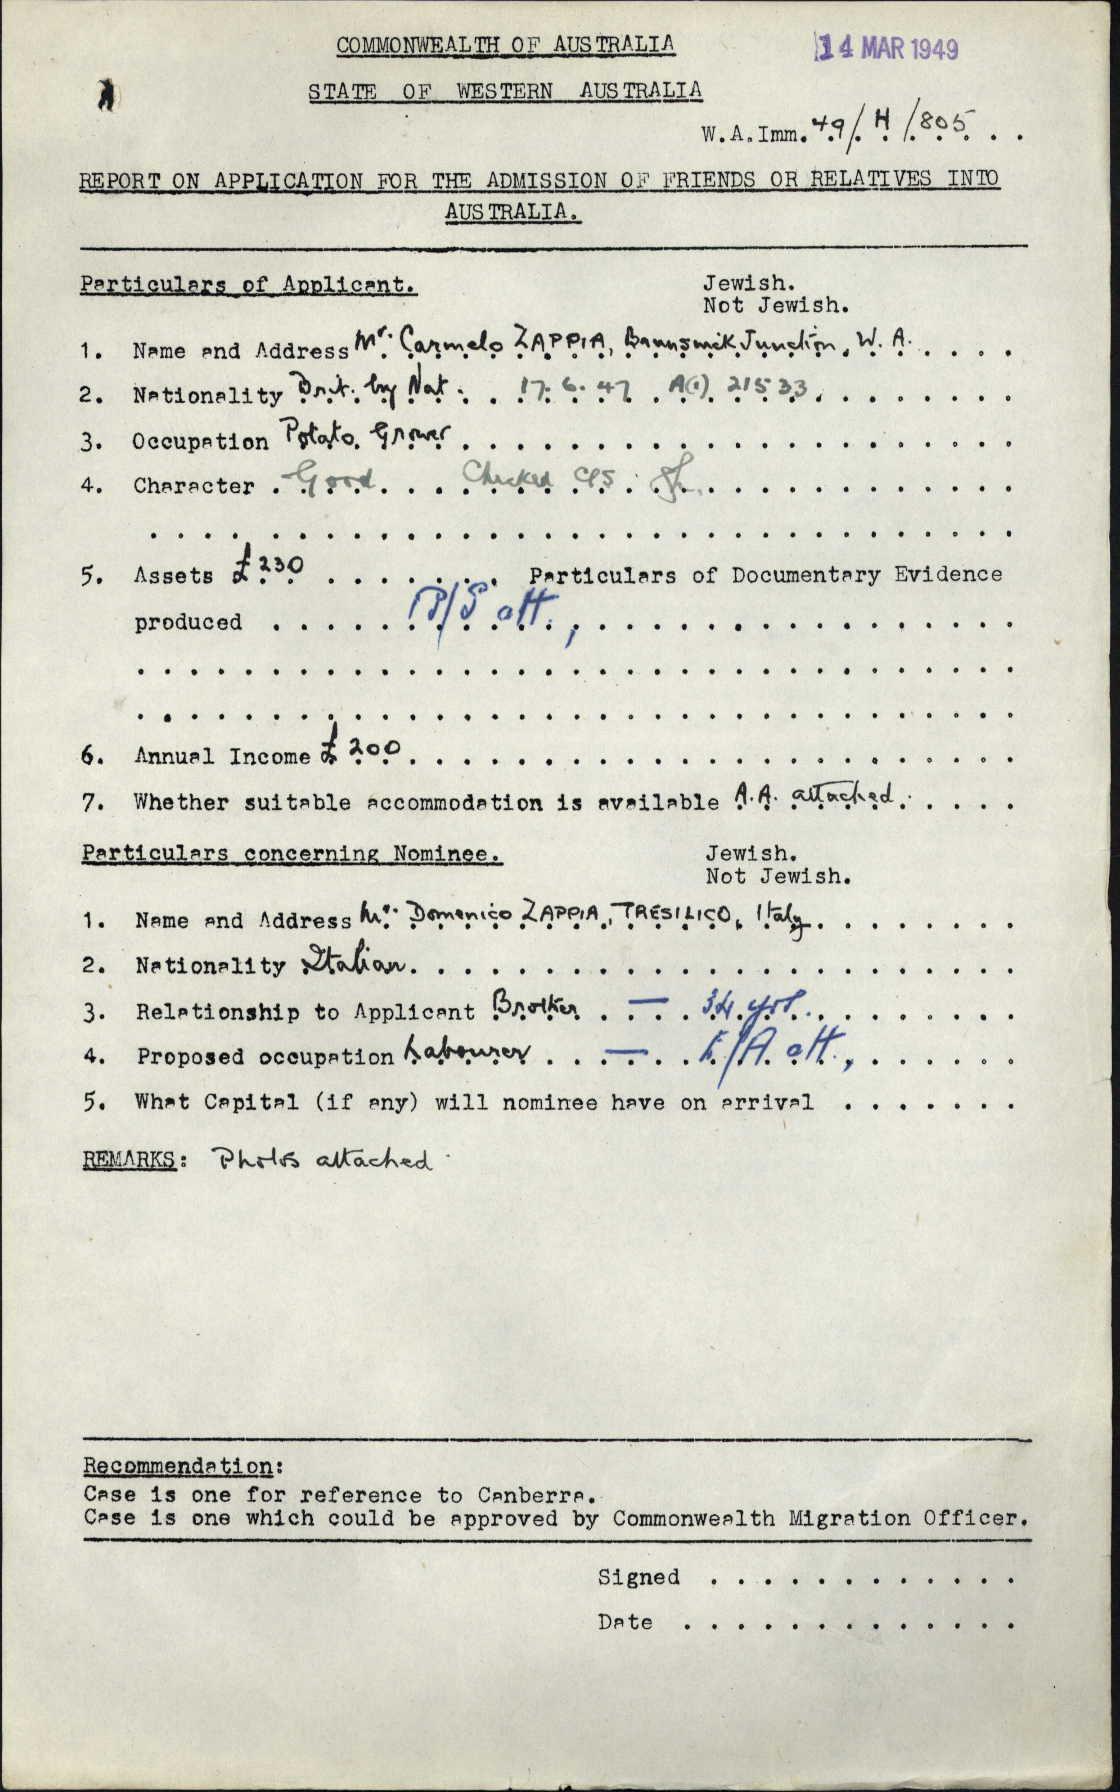 COMMONWEALTH OF AUSTRALIA
14 MAR 1949
STATE OF WESTERN AUSTRALIA
W.A.Imm. 49/H/805
REPORT ON APPLICATION FOR THE ADMISSION OF FRIENDS OR RELATIVES INTO
AUSTRALIA.
Particulars of Applicant. Jewish.
Not Jewish.
1. Name and Address Mr. Carmelo ZAPPIA, Brunswick Junction, W. A.
2. Nationality Brit. by Nat. 17.6.47 A(1) 21533
3. Occupation Potato Grower
4. Character Good Checked CPS
5. Assets £230 Particulars of Documentary Evidence
produced P/S att.,
6. Annual Income £200
7. Whether suitable accommodation is available A.A. attached.
Particulars concerning Nominee. Jewish.
Not Jewish.
1. Name and Address Mr. Domenico ZAPPIA, TRESILICO, Italy
2. Nationality Italian
3. Relationship to Applicant Brother — 34 yrs.
4. Proposed occupation Labourer — L/A att.,
5. What Capital (if any) will nominee have on arrival
REMARKS: Photos attached
Recommendation:
Case is one for reference to Canberra.
Case is one which could be approved by Commonwealth Migration Officer.
Signed
Date